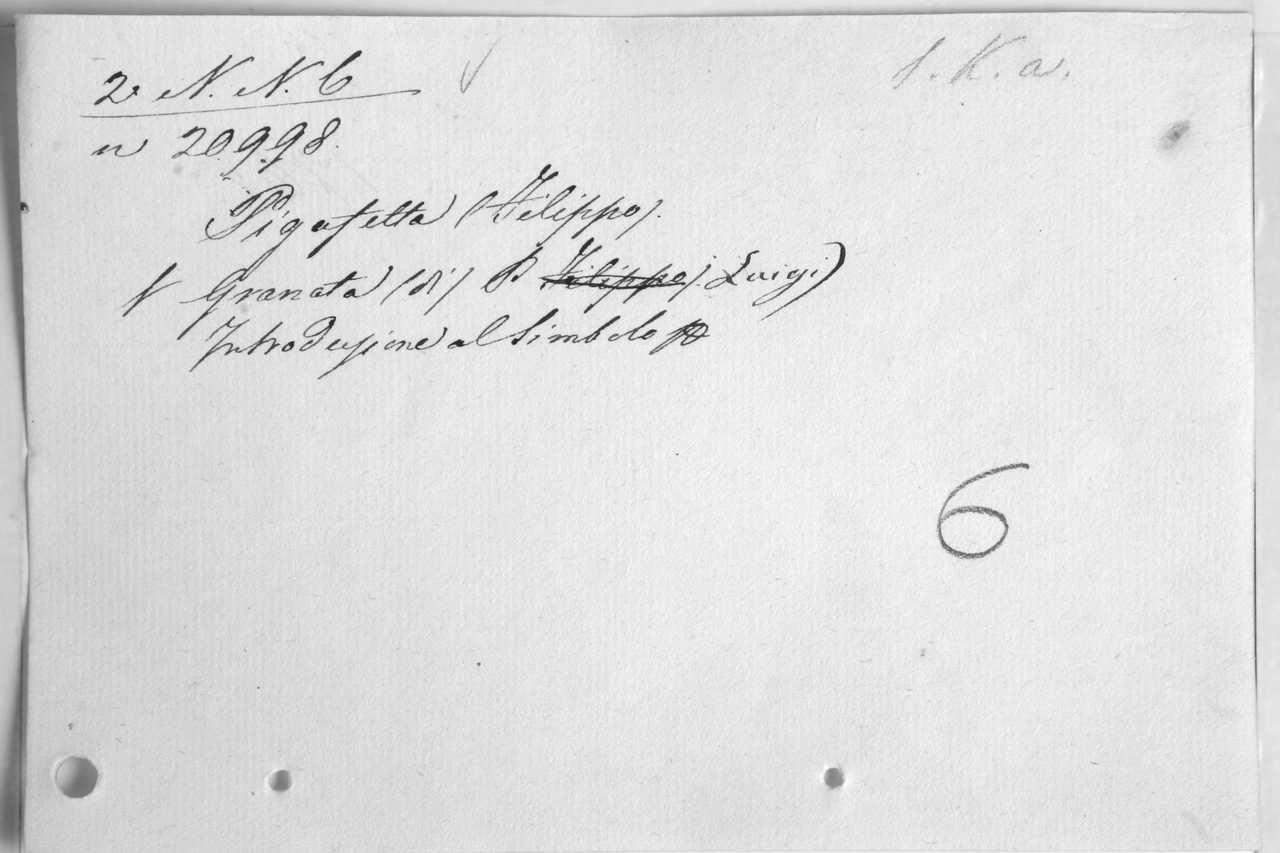 2. N. N. 6
S. K. a.
n 20998.
Pigafetta (Filippo).
V Granata (di) P. Filippo). Luigi)
Introduzione al Simbolo
6